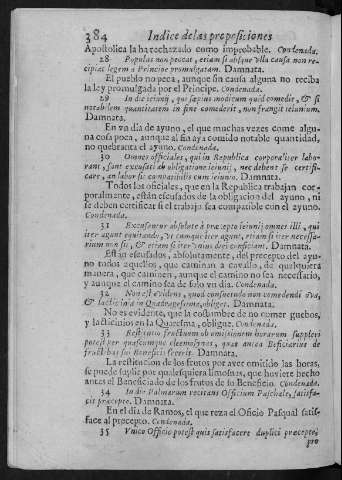 384 Indice de las proposiciones
Apostolica la ha rechazado como improbable. Condenada.
28 Populus non peccat, etiam si absque ulla causa non re-
cipiat legem à Principe promulgatam. Damnata.
El pueblo no peca, aunque sin causa alguna no reciba
la ley promulgada por el Principe. Condenada.
29 In die ieiunij, qui sæpius modicum quid comedit, & si
notabilem quantitatem in fine comederit, non frangit ieiunium.
Damnata.
En vn dia de ayuno, el que muchas vezes come algu-
na cosa poca, aunque al fin aya comido notable quantidad,
no quebranta el ayuno. Condenada.
30 Omnes officiales, qui in Republica corporaliter labo-
rant, sunt excusati ab obligatione ieiunij, nec debent se certifi-
care, an labor sit compatibilis cum ieiunio. Damnata.
Todos los oficiales, que en la Republica trabajan cor-
poralmente, están escusados de la obligacion del ayuno, ni
se deben certificar si el trabajo sea compatible con el ayuno.
Condenada.
31 Excusantur absolute à præcepto ieiunij omnes illi, qui
iter agunt equitando, vt cumque iter agant, etiam si iter necessa-
rium non sit, & etiam si iter vnius diei conficiant. Damnata.
Están escusados, absolutamente, del precepto del ayu-
no todos aquellos, que caminan a cavallo, de qualquiera
manera, que caminen, aunque el camino no sea necessario,
y aunque el camino sea de solo vn dia. Condenada.
32 Non est evidens, quod consuetudo non comedendi ova,
& lacticinia in Quadragesima, obliget. Damnata.
No es evidente, que la costumbre de no comer guebos,
y lacticinios en la Quaresma, obligue. Condenada.
33 Restitutio fructuum ob omissionem horarum suppleri
potest per quascumque eleemosynas, quas antea Beficiarius de
fructibus sui Beneficij fecerit. Damnata.
La restitucion de los frutos por aver omitido las horas,
se puede suplir por qualesquiera limosnas, que huviere hecho
antes el Beneficiado de los frutos de su Beneficio. Condenada.
34 In die Palmarum recitans Officium Paschale, satisfa-
cit præcepto. Damnata.
En el dia de Ramos, el que reza el Oficio Pasqual satis-
face al precepto. Condenada.
35 Vnico Officio potest quis satisfacere duplici præcepto,
pro